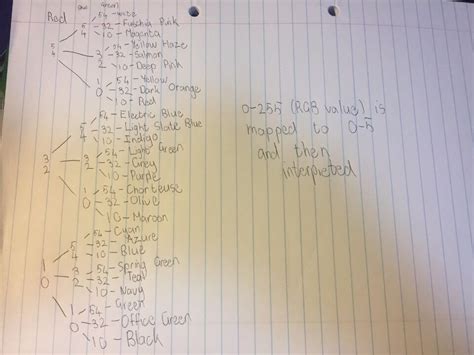 Red Blue Green
54 - White
5 - 32 - Fuschia Pink
4 10 - Magenta
54 - Yellow Haze
5 3 - 32 - Salmon
4 2 10 - Deep Pink
54 - Yellow
1 - 32 - Dark Orange
0 10 - Red
54 - Electric Blue
5 - 32 - Light Slate Blue
4 10 - Indigo
54 - Light Green
3 3 - 32 - Grey
2 2 10 - Purple
54 - Charteuse
1 - 32 - Olive
0 10 - Maroon
54 - Cyan
5 - 32 - Azure
4 10 - Blue
54 - Spring Green
1 3 - 32 - Teal
0 2 10 - Navy
1 54 - Green
0 - 32 - Office Green
10 - Black
0-255 (RGB value) is
mapped to 0-5
and then
interpreted